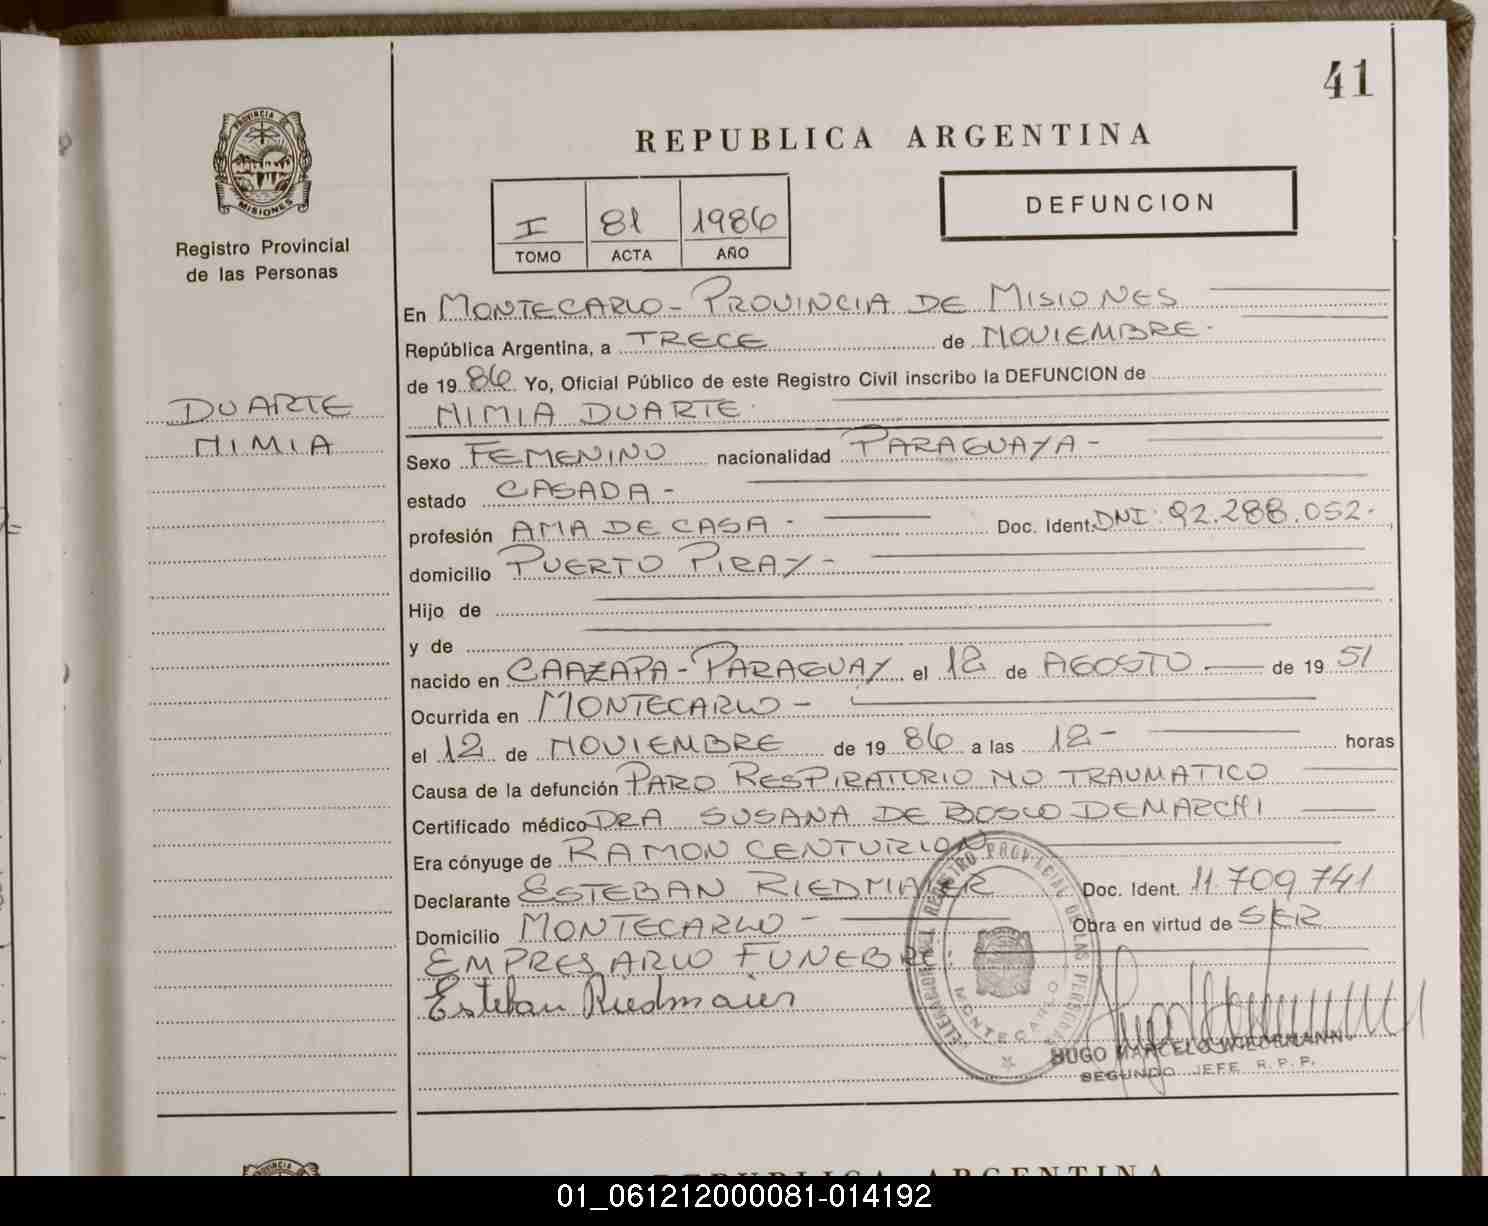 41
PROVINCIA DE
MISIONES
REPUBLICA ARGENTINA
I 81 1986
TOMO ACTA AÑO
DEFUNCION
Registro Provincial
de las Personas
DUARTE
NIMIA
En MONTECARLO - PROVINCIA DE MISIONES
República Argentina, a TRECE de NOVIEMBRE.
de 19 86 Yo, Oficial Público de este Registro Civil inscribo la DEFUNCION de
NIMIA DUARTE.
Sexo FEMENINO nacionalidad PARAGUAYA -
estado CASADA -
profesión AMA DE CASA - Doc. Ident. DNI: 92.288.052-
domicilio PUERTO PIRAY -
Hijo de
y de
nacido en CAAZAPA - PARAGUAY el 12 de AGOSTO de 19 51
Ocurrida en MONTECARLO -
el 12 de NOVIEMBRE de 19 86 a las 12 - horas
Causa de la defunción PARO RESPIRATORIO NO TRAUMATICO
Certificado médico DRA SUSANA DE BOSCO DEMARCHI
Era cónyuge de RAMON CENTURION
Declarante ESTEBAN RIEDMAIER Doc. Ident. 11.709.741
Domicilio MONTECARLO - Obra en virtud de SER
EMPRESARIO FUNEBRE.
Esteban Riedmaier
REGISTRO PROVINCIAL DE LAS PERSONAS
MONTECARLO
HUGO MARCELO WIEDEMANN
SEGUNDO JEFE R.P.P.
REPUBLICA ARGENTINA
01_061212000081-014192